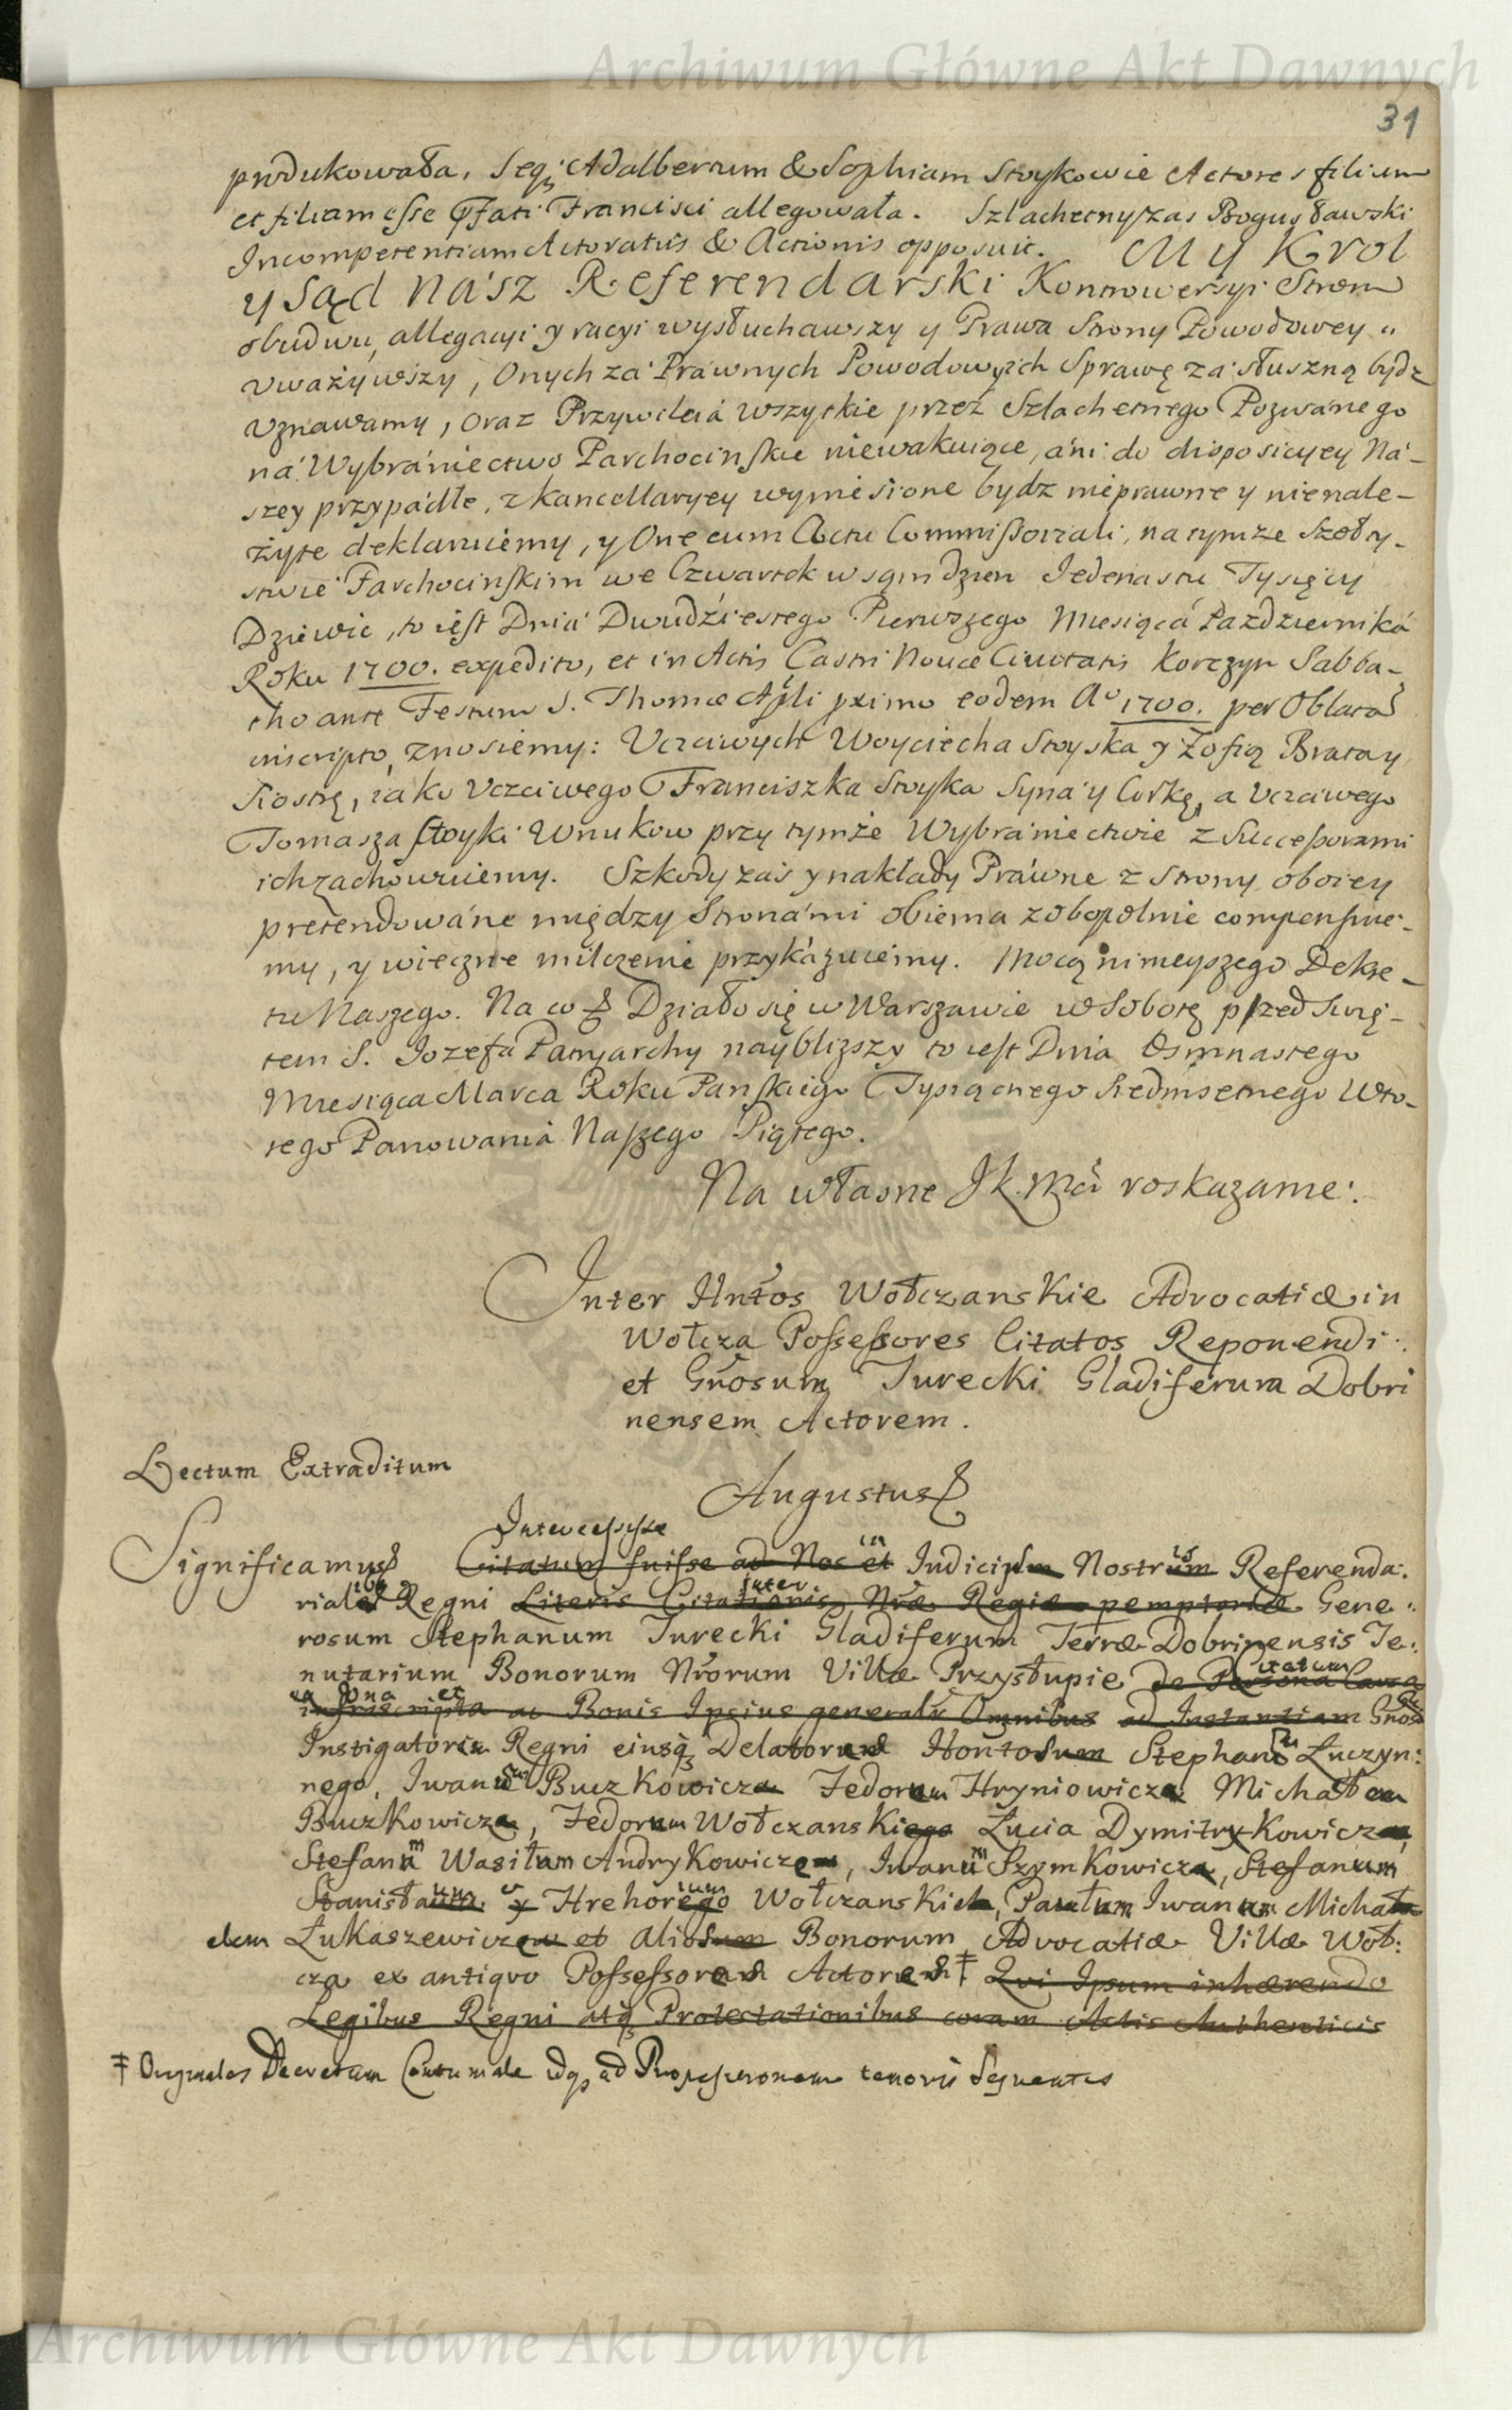 Archiwum Główne Akt Dawnych
31
produkowała, seq3 Adalbertum & Sophiam Stoykowie Actores filium
et filiam esse Pfati Francisci allegowała. Szlachetny zas Bogusławski
Incompetentiam Actoratus & Actionis opposuit. My Krol
y Sąd nasz Referendarski Kontrowersyi Stron
obudwu, allegacyi y racyi wysłuchawszy y Prawa Strony Powodowey
uważywszy, Onych za Prawnych Powodowych Sprawę za słuszną bydz
uznawamy, oraz Przywileia wszytkie przez Szlachetnego Pozwanego
ná Wybraniectwo Parchocinskie niewakuiące, áni do disposicyey Ná-
szey przypádłe, z kancellaryey wyniesione bydz nieprawne y nienale-
żyte deklaruiemy, y One cum Actu Commissoriali, na tymze Szołty-
stwie Parchocinskim we Czwartek w sam dzien Jedenastu Tysięcy
Dziewic, to iest Dniá Dwudziestego Pierwszego Miesiąca Pazdzierniká
Roku 1700. expedito, et in Actis Castri Novae Civitatis Korczyn Sabba-
tho ante Festum S. Thomae Apli pximo eodem Ao 1700. per Oblatã
inscripto, znosiemy: Uczciwych Woyciecha Stoyka y Zofią Brata y
Siostrę, iako Uczciwego Franciszka Stoyka Syna y Corkę, a Uczciwego
Tomasza Stoyki Wnukow przy tymże Wybraniectwie z Successorami
ich zachowuiemy. Szkody zaś y nakłady Práwne z Strony oboiey
pretendowáne między Stronámi obiema zobopolnie compensuie-
my, y wieczne milczenie przykázuiemy. Mocą ninieyszego Dekre-
tu Naszego. Na co & Działo się w Warszawie w Sobotę przed Swię-
tem S. Jozefa Patryarchy naybliższy to iest Dnia Osmnastego
Miesiąca Marca Roku Panskiego Tysiącnego Siedmsetnego Wto-
rego Panowania Naszego Piątego.
Na własne JK. Mci roskazanie:
Inter Hntos Wołczanskie Advocatiae in
Wołcza Possessores Citatos Reponendi
et Gnosum Turecki Gladiferum Dobri
nensem Actorem.
Lectum Extraditum
Augustus &
Intercessisse
Significamus & Citatum fuisse ad Nos et in Iudicium Nostrum is Referenda:
riale Regni Literis Citationis inter Nrae Regiae pemptoriae Gene:
rosum Stephanum Turecki Gladiferum Terrae Dobrinensis Te:
nutarium Bonorum Nrorum Villae Przysłupie Citatum de Persona Causa
ea una et
infrascripta ac Bonis Ipsius generalr Omnibus ad Instantiam Gnosi
Instigatoris Regni eiusq3 Delatorum Hontosum Stephano Łuczyn:
nego, Iwanu Buczkowicza Fedorum Hryniowicza Michałem
Buczkowicza, Fedorum Wołczanskiego Łucia Dymitrykowicza,
Stefanum Wasilum Andrykowicza, Iwanum Szymkowicza, Stefanum
Stanisławum et y Hrehorego Wołczanskich, Pawłum Iwanum Michał
elem Łukaszewiczow et Aliosum Bonorum Advocatiae Villae Woł:
cza ex antiqvo Possessorum Actorum ‡ Qvi Ipsum inhaerendo
Legibus Regni atq3 Protestationibus coram Actis Authenticis
‡ Originales Decretum Contumale idq3 ad Propositionem tenoris seqventis
Archiwum Główne Akt Dawnych